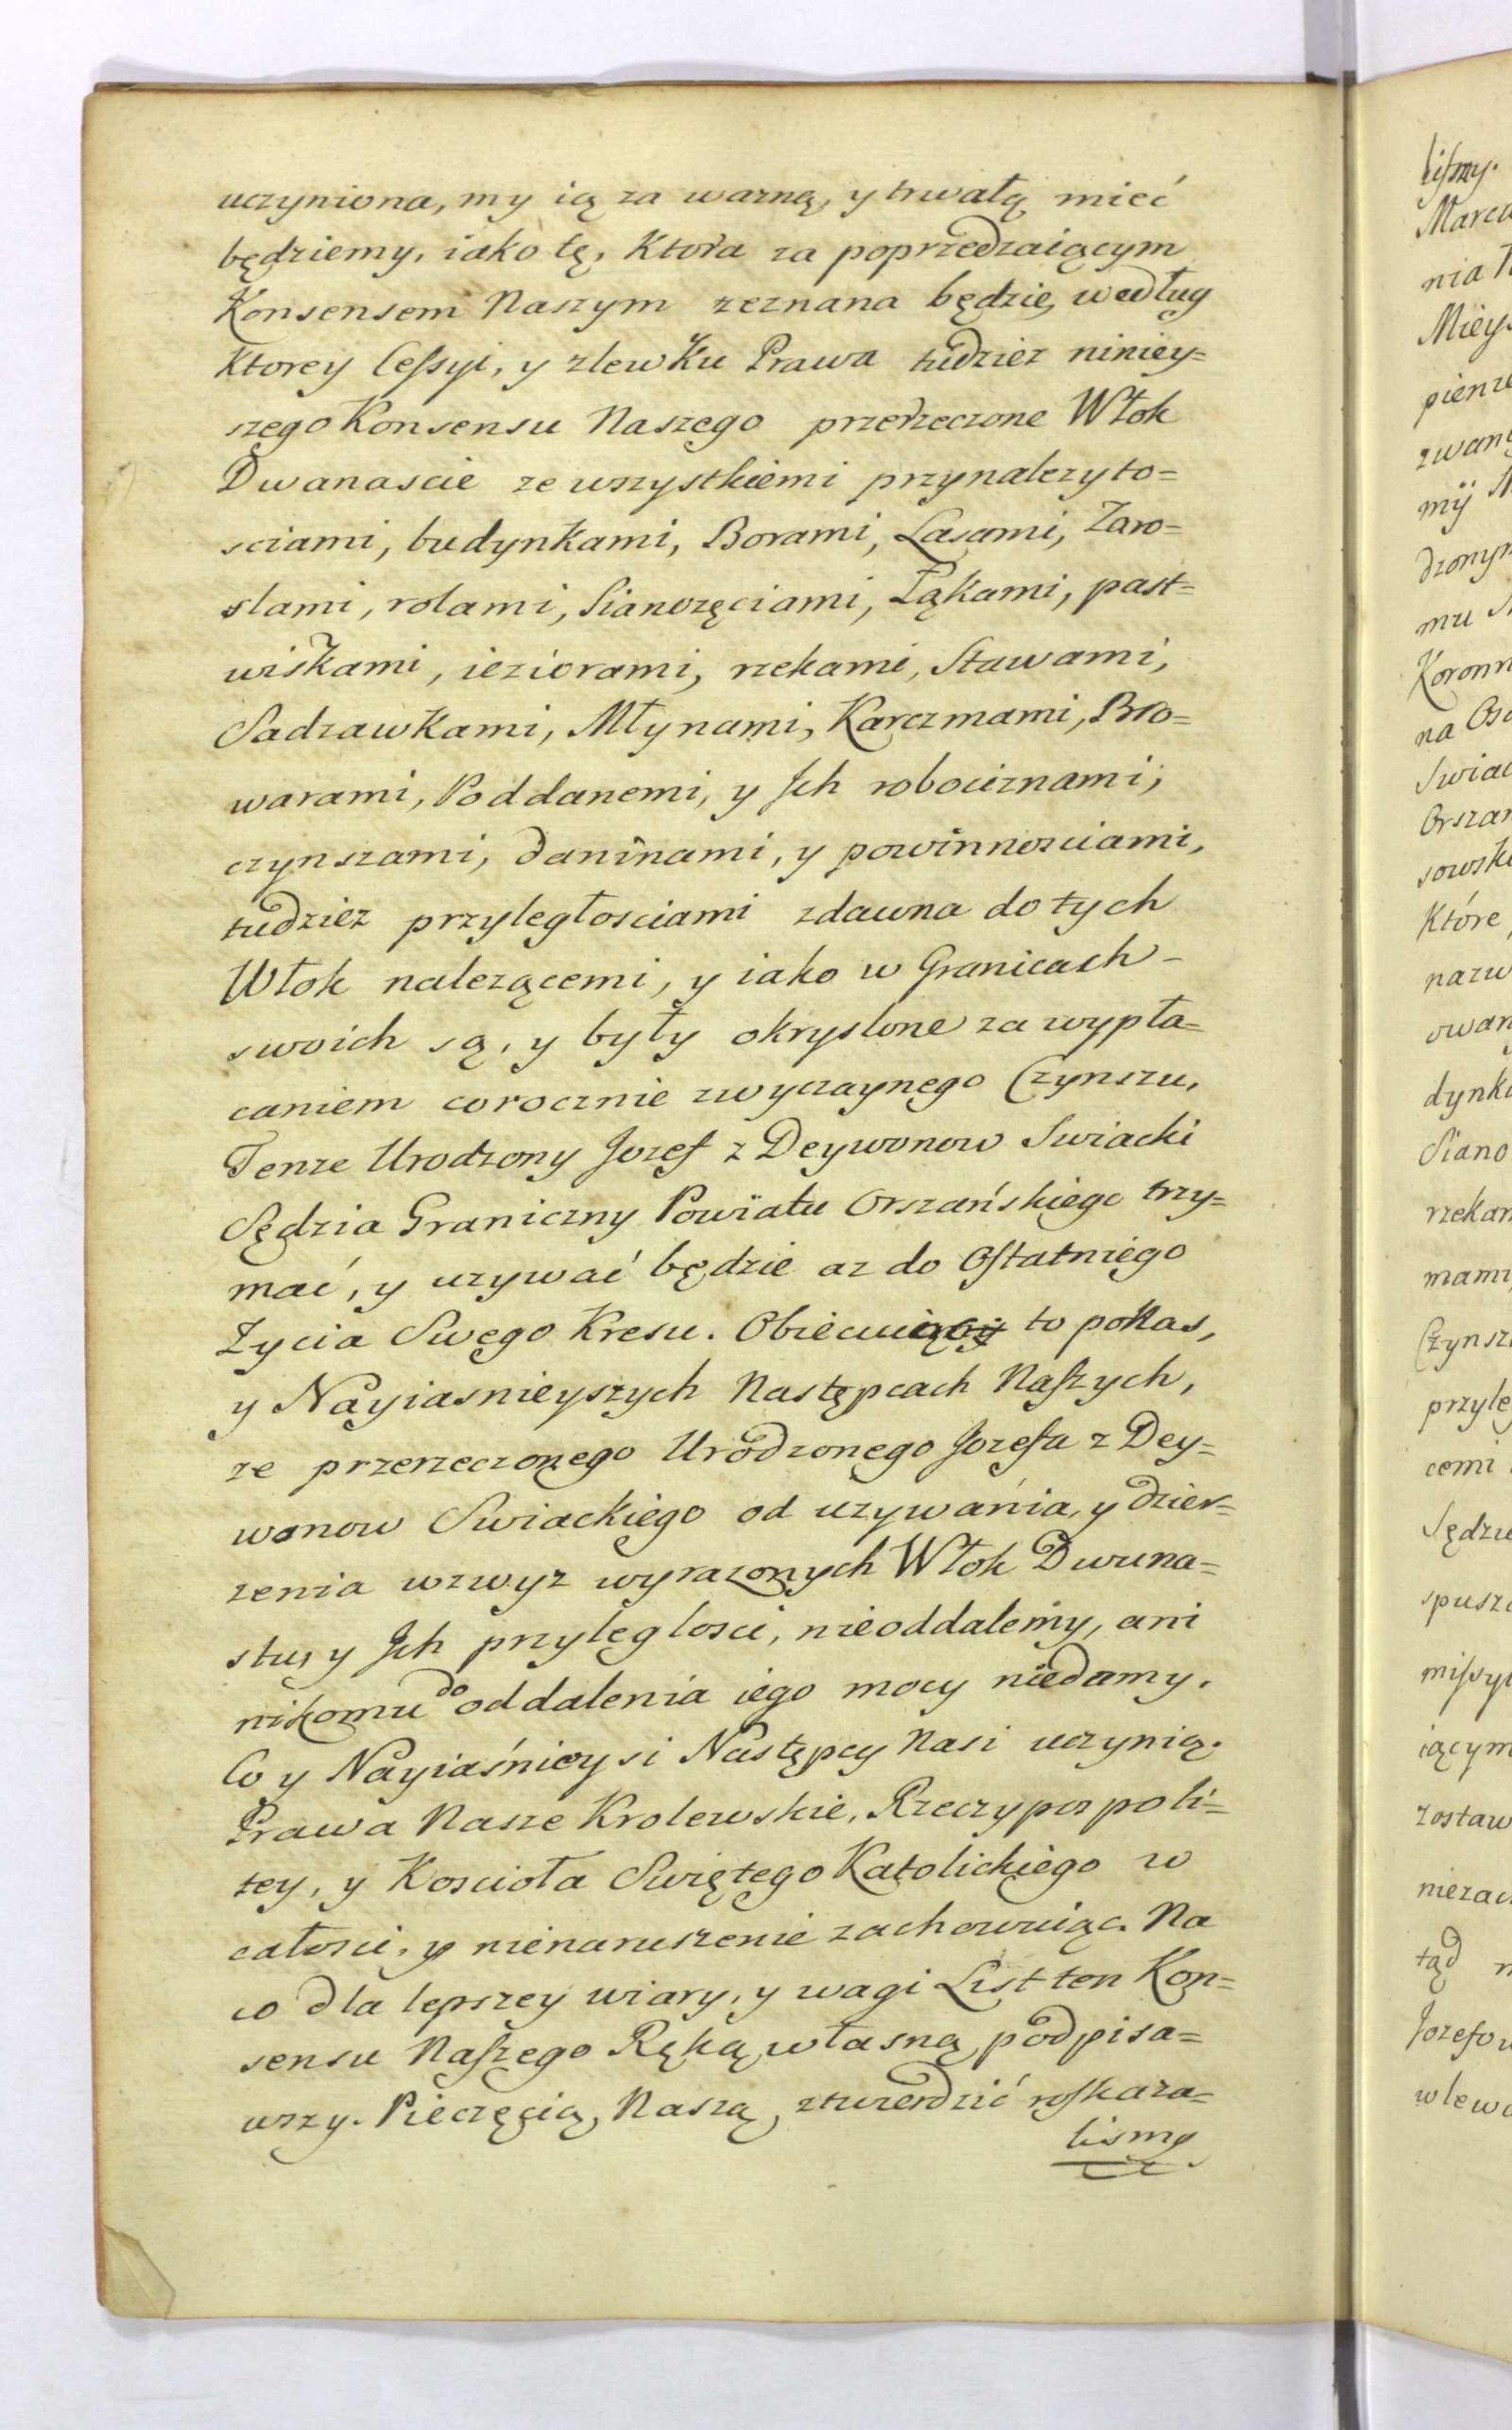 uczyniona, my ią za warną, y trwałą mieć
będziemy, iako tę, Ktora za poprzedzaiącym
Konsensem Naszym zeznana będzie, według
Ktorey Cessyi, y zlewKu Prawa tudziez niniey=
szego Konsensu Naszego przerzeczone Włok
Dwanascie ze wszystkiemi przynalezyto=
sciami, budynkami, Borami, Lasami, Zaro=
slami, rolami, Sianozęciami, Łąkami, past=
wiskami, ieziorami, rzekami, Stawami,
Sadzawkami, Młynami, Karczmami, Bro=
warami, Poddanemi, y Ich robociznami,
czynszami, daninami, y powinnosciami,
tudziez przyległosciami zdawna do tych
Włok nalezącemi, y iako w Granicach
swoich są, y były okryslone za wypła=
caniem corocznie zwyczaynego Czynszu,
Tenze Urodzony Jozef z Deywonow Swiacki
Sędzia Graniczny Powiatu Orszańskiego trzy=
mać, y uzywać będzie az do Ostatniego
Zycia Swego Kresu. Obiecuiąc to poNas,
y Nayiasnieyszych Następcach Naszych,
ze przerzeczonego Urodzonego Jozefa z Dey=
wonow Swiackiego od uzywania, y dzier=
zenia wzwyz wyrazonych Włok Dwuna=
stu, y Ich przyleglosci, nieoddalemy, ani
nikomu do oddalenia iego mocy niedamy.
Co y Nayiaśnieysi Następcy Nasi uczynią.
Prawa Nasze Krolewskie, Rzeczypospoli=
tey, y Kosciola Swiętego Katolickiego w
całosci, y nienaruszenie zachowuiąc. Na
co dla lepszey wiary, y wagi List ten Kon=
sensu Naszego Ręką własną podpisa=
wszy. Pieczęcią Naszą ztwierdzić roskaza=
lismy
lismy.
Marca
nia
Miey
pienze
zwany
mij
dzonym
mu
Koronn
na
Swiac
Orszan
sowsk
Które
nazw
owan
dynk
Siano
rzekam
mami
Czynsz
przyle
cemi
Sędzi
spusz
missy
iącym
zostaw
niezac
tąd
Jozefow
wlewo